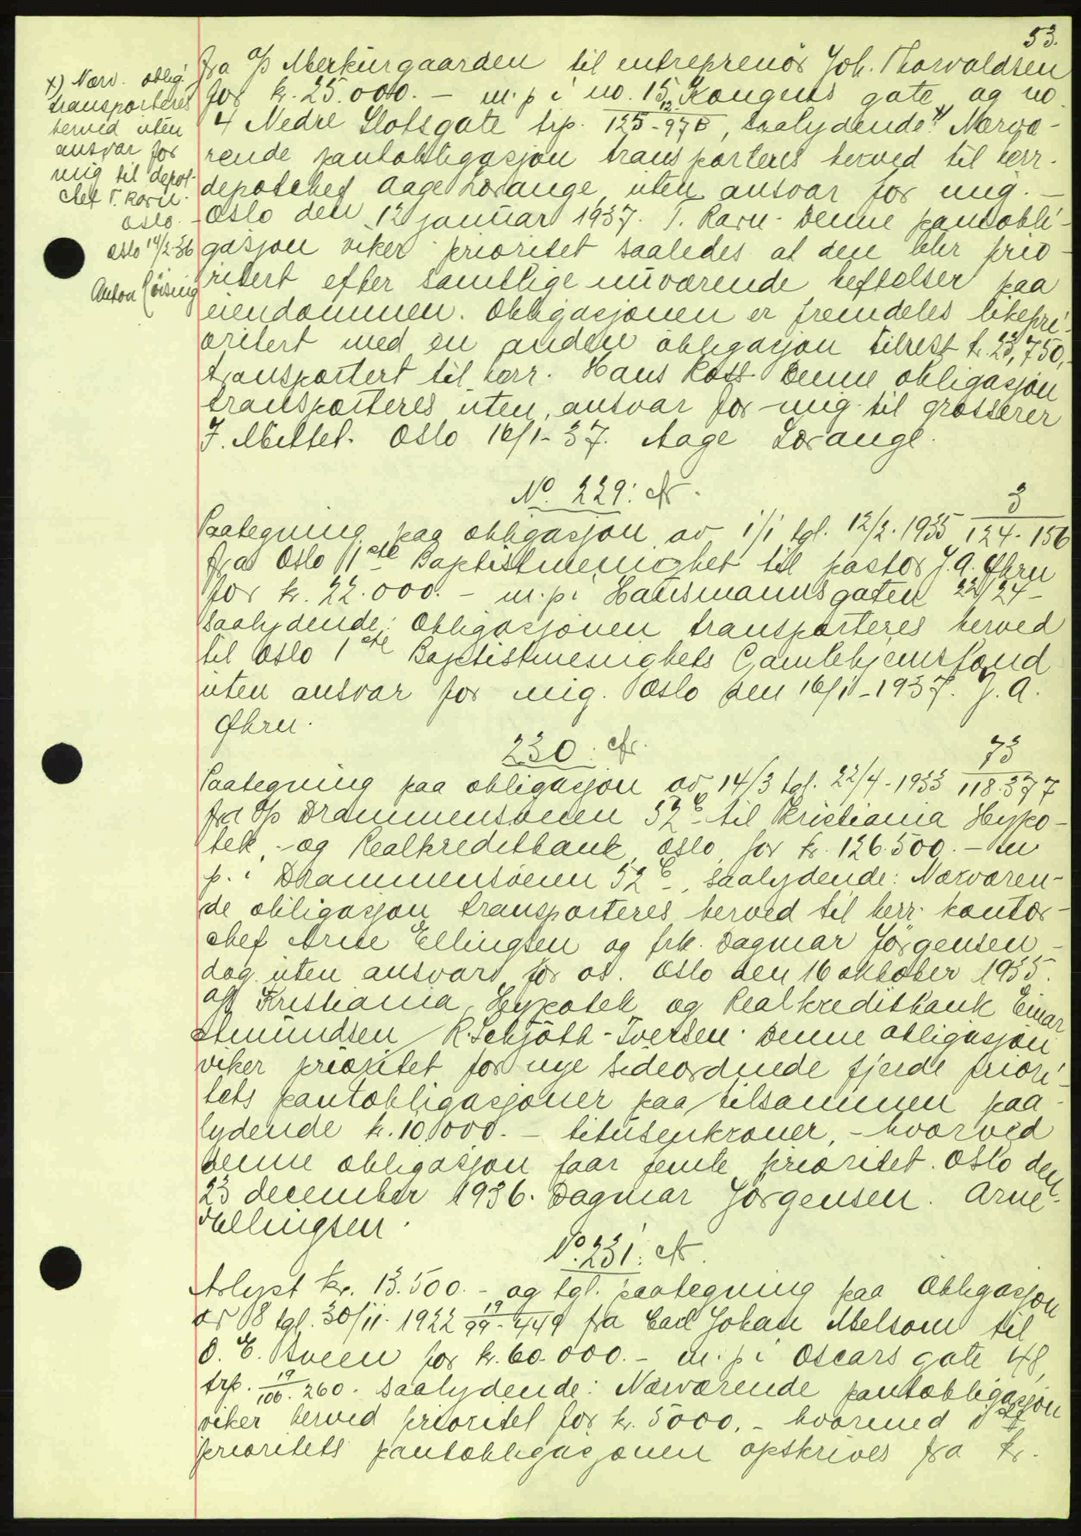 53.
x) Nærv. oblig.
transporteres
herved uten
ansvar for
mig til depot-
chef T. Ravn.
Oslo.
Oslo 14/2-36
Anton Röising
fra A/S Merkurgaarden til entreprenör Joh. Thorvaldsen
for kr. 25.000.- m. p. i no. 15 Kongens gate og no.
4 Nedre Slotsgate trp. 12/125-978, saalydende: x) Nærvæ-
rende pantobligasjon transporteres herved til herr.
depotchef Aage Lorange uten ansvar for mig. -
Oslo den 12 januar 1937. T. Ravn. Denne pantobli-
gasjon viker prioritet saaledes at den blir prio-
ritert efter samtlige nuværende heftelser paa
eiendommen. Obligasjonen er fremdeles likepri-
oritert med en anden obligasjon tilrest kr. 23,750,-
transportert til herr. Hans Ross. Denne obligasjon
transporteres uten ansvar for mig til grosserer
J. Mittet. Oslo 16/1-37. Aage Lorange.
No. 229: Ar.
Paategning paa obligasjon av 1/1 tgl. 12/2-1935 3/124-156
fra Oslo 1ste Baptistmenighet til pastor J. A. Öhrn
for kr. 22.000.- m. p. i Hausmannsgaten 22/24-
saalydende: Obligasjonen transporteres herved
til Oslo 1ste Baptistmenighets Gamlehjemsfond
uten ansvar for mig. Oslo den 16/1-1937. J. A.
Öhrn.
230: Ar.
Paategning paa obligasjon av 14/3 tgl. 22/4-1933 73/118-377
fra A/S Drammensveien 52E til Kristiania Hypo-
tek- og Realkreditbank, Oslo, for kr. 126.500.- m
p. i Drammensveien 52E, saalydende: Nærværen-
de obligasjon transporteres herved til herr. kontor-
chef Arne Ellingsen og frk. Dagmar Jörgensen -
dog uten ansvar for os. Oslo den 16 oktober 1935.
A/S Kristiania Hypotek og Realkreditbank Einar
Amundsen / R. Schjöth-Iversen. Denne obligasjon
viker prioritet for nye sideordnede fjerde priori-
tets pantobligasjoner paa tilsammen paa-
lydende kr. 10.000.- titusenkroner, - hvorved
denne obligasjon faar femte prioritet. Oslo den
23 december 1936. Dagmar Jörgensen. Arne
Ellingsen.
No. 231: Ar.
Avlyst kr. 13.500.- og tgl. paategning paa Obligasjon
av 8 tgl. 30/11-1922 19/99-449 fra Carl Johan Melsom til
O. E. Sveen for kr. 60.000.- m. p. i Oscars gate 48,
trp. 19/106-260. saalydende: Nærværende pantobligasjon
viker herved prioritet for kr. 5000.- hvormed
prioritets pantobligasjonen opskrives fra kr.